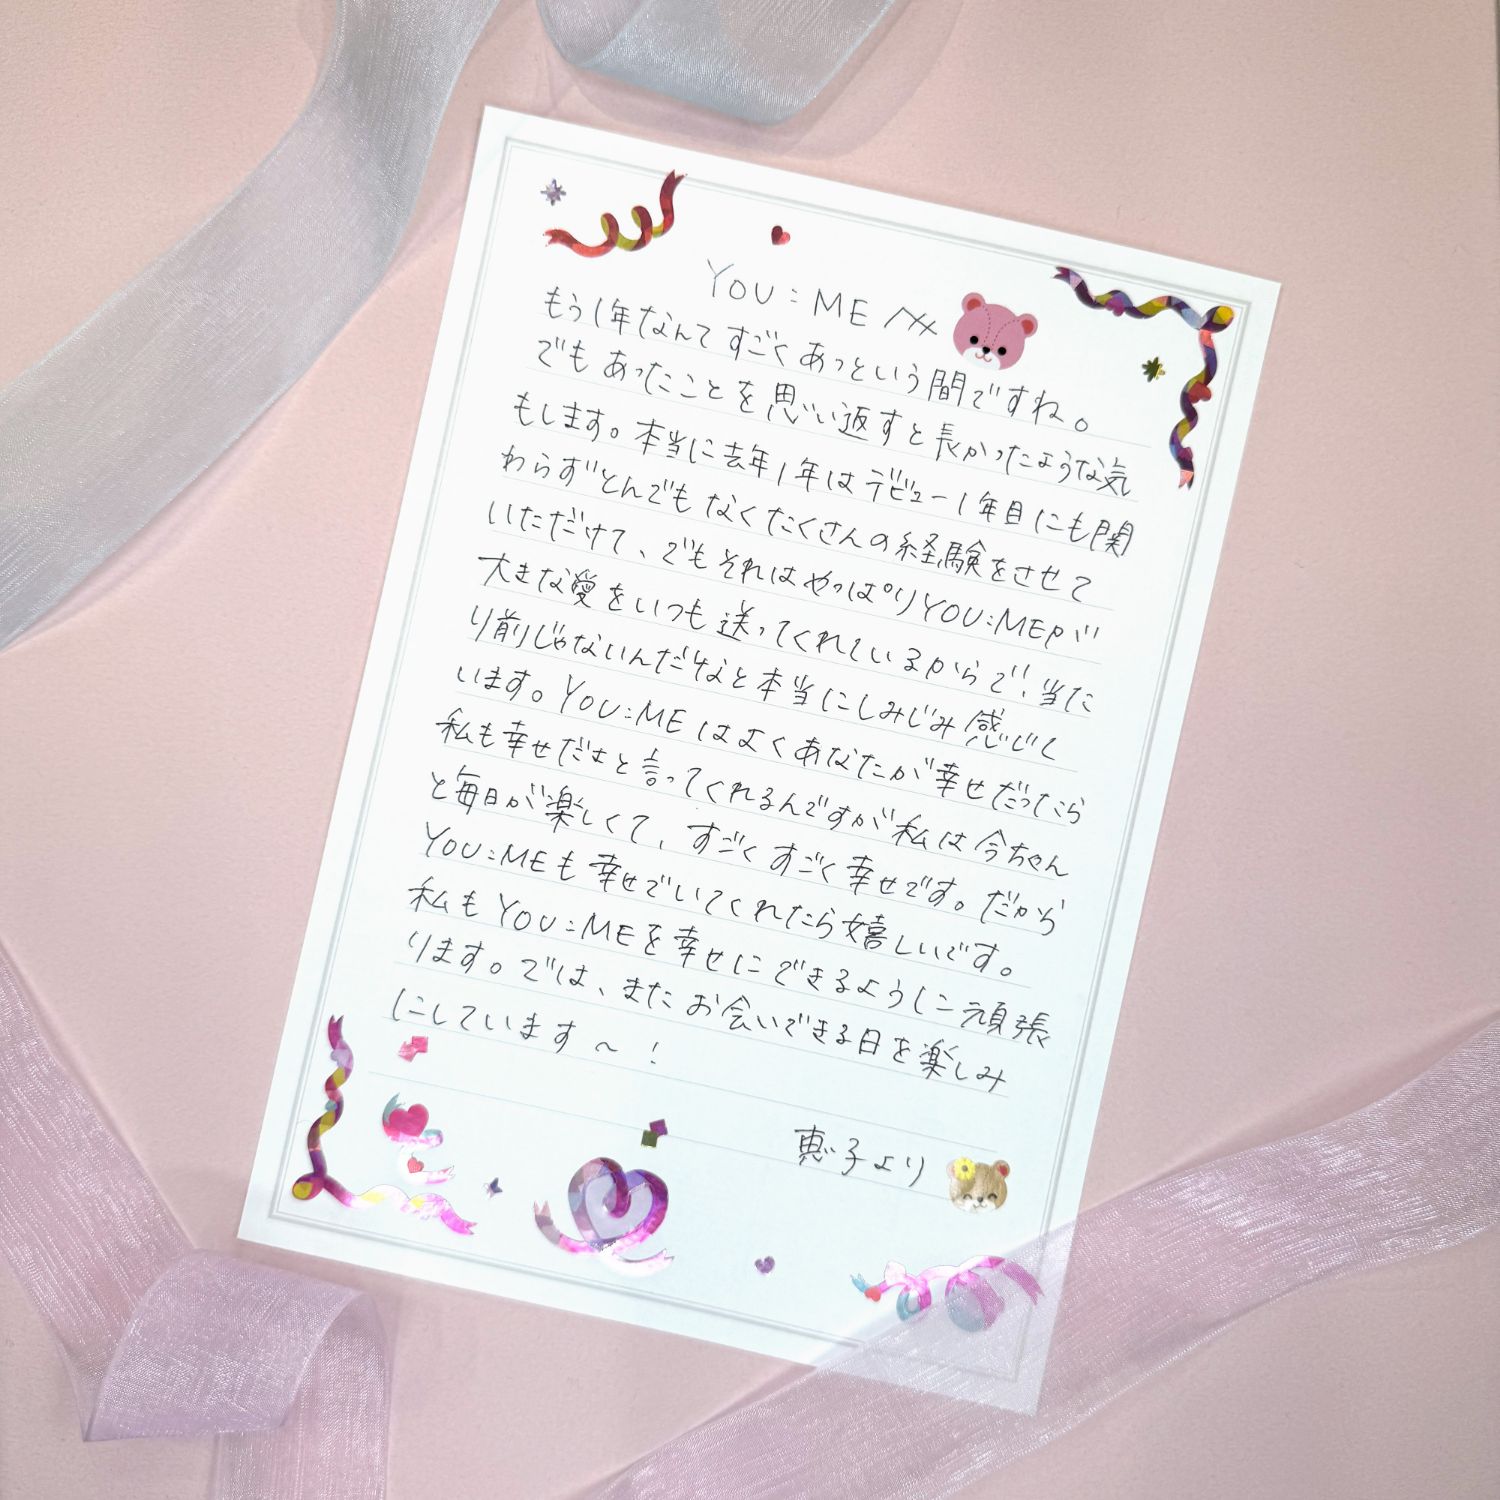 YOU:ME へ
もう1年なんてすごくあっという間ですね。
でもあったことを思い返すと長かったような気
もします。本当に去年1年はデビュー1年目にも関
わらずとんでもなくたくさんの経験をさせて
いただけて、でもそれはやっぱりYOU:MEが
大きな愛をいつも送ってくれているからで、当た
り前じゃないんだなと本当にしみじみ感じて
います。YOU:MEはよくあなたが幸せだったら
私も幸せだよと言ってくれるんですが私は今ちゃん
と毎日が楽しくて、すごくすごく幸せです。だから
YOU:MEも幸せでいてくれたら嬉しいです。
私もYOU:MEを幸せにできるように頑張
ります。では、またお会いできる日を楽しみ
にしています〜!
恵子より